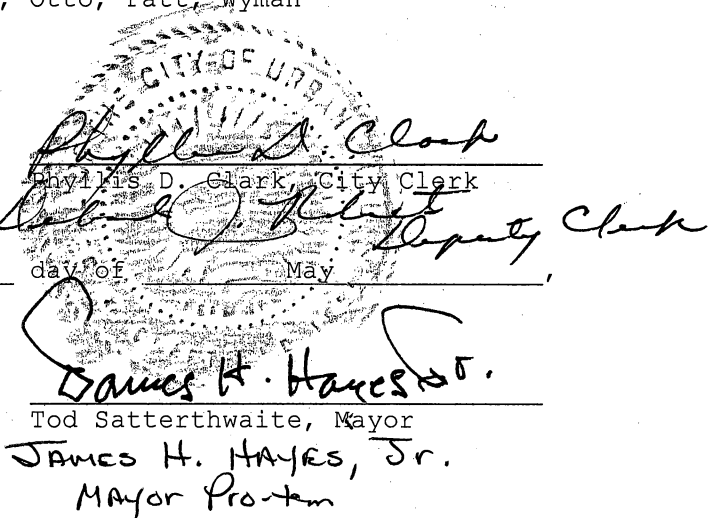 , Otto, Patt, Wyman
CITY OF URBA
Phyllis D. Clark
Phyllis D. Clark, City Clerk
J. Deputy Clerk
day of May ,
James H. Hayes Jr.
Tod Satterthwaite, Mayor
JAMES H. HAYES, Jr.
MAyor Pro-tem